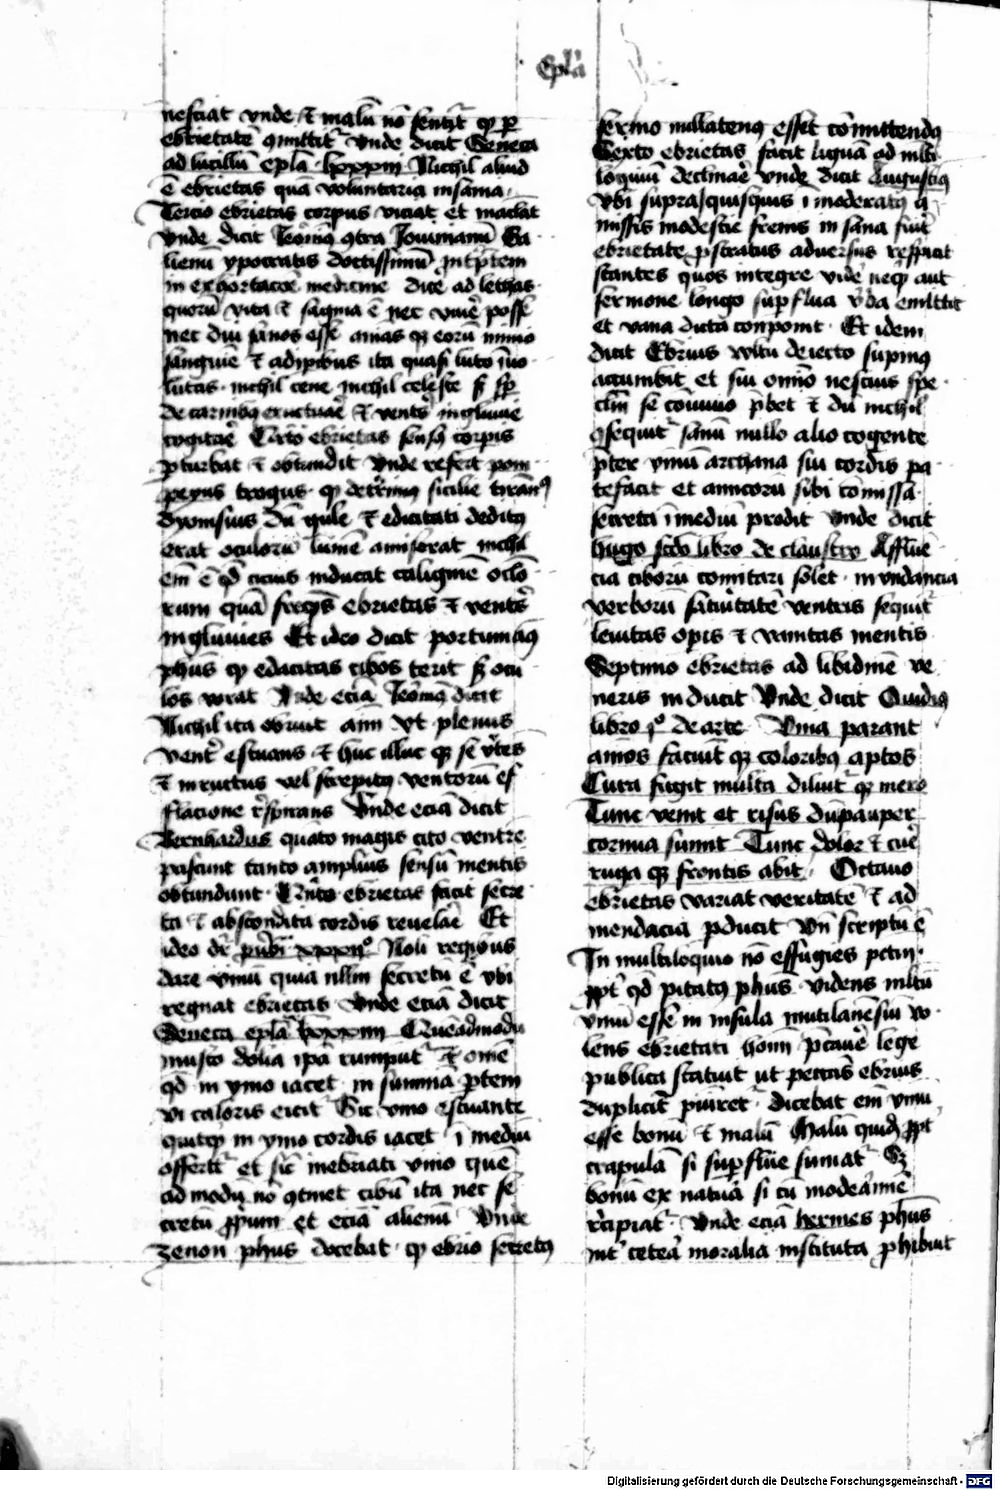 Epla
nesciat vnde ⁊ malū nō sentit᷑ qp per
ebrietatē ꝯmittit᷑ Vnde dicit Seneca
ad lucillū epla lxxxiij Nichil aliud
ē ebrietas quā voluntaria insania
Tercio ebrietas corpus viciat et maclat
Vnde dicit Ieōimꝰ ꝯtra Iouinianū Ga
lienū ypocratis doctissimū int͛p̄tem
in exhortacōe medicine dic̄e ad lethas
quorū vita ⁊ sagina ē nec viuē posse
nec diu sanos esse aīas qꝫ eorū nimio
sanguīe ⁊ adipibus ita quasi luto īuo
lutas nichil tene nichil celeste sꝫ sp̄
de carnibꝫ eructuāe ⁊ vent͛s ingluuie
cogitāe Q̈rto ebrietas sensꝫ corpis
ꝑturbat ⁊ obtundit Vnde refert pom
peyus trogus qp deterimꝰ sicilie tirānꝰ
dyonisius dū gule ⁊ edicitati deditꝰ
erat oculorū lumē amiserat nichil
em̄ ē qd̄ cicius inducat caligīnē oclō
rum quā freqn̄s ebrietas ⁊ vent͛s
ingluuies Et ideo dicit portunianꝰ
phūs qp edacitas cibos terit sꝫ ocu
los vorat Vnde eciā Ieōimꝰ dicit
Nichil ita obruit aīm vt plenus
vent͛ estuans ⁊ huc illuc qꝫ se v͛tēs
⁊ in ructus vel strepitꝰ ventorū ef
flacione r͛spirans Vnde eciā dicit
Bernhardus quāto magis cito ventrē
pascunt tanto amplius sensū mentis
obtundunt Qnto ebrietas facit secre
ta ⁊ abscondita cordis reuelāe Et
ideo dr̄ pu͛bi xxxiº Noli regibus
dare vinū quia nllm̄ secretū ē vbi
regnat ebrietas Vnde eciā dicit
Seneca epla lxxxiiij Quēadmodū
musto dolia ipā rumpūt᷑ ⁊ omē
qd̄ in ymo iacet in summā ꝑtem
vi caloris eicit᷑ Sic vino estuante
quitqd in ymo cordis iacet ī mediū
offert᷑ et sic inebriati vino quē
ad modū nō ꝯtinet cibū ita nec se
cretū ꝓpium et eciā alienū Vnde
zenon phus docebat qp ebrio secretꝰ
sermo nullatenꝰ esset cōmittendꝰ
Sexto ebrietas facit liguā ad mlti
loquiū declināe vnde dicit Augustiꝰ
Vbi supra quisquis īmoderatꝰ a
missis modestie frenis in sana fuit᷑
ebrietate ꝓstratus aduersus respiciat
stantes quos integre vide neqꝫ aut
sermone longo supflua v͛ba emittit
et vana dicta conponit Et idem
dicit Ebrius vvltu deiecto supinꝰ
accumbit et sui om̄io nescius spe
ctm̄ se cōuiuio p̄bet ⁊ dū nichil
ꝯsequit᷑ sanū nullo alio cogente
p̄ter vinū archana sui cordis pa
tefacit et amicorū sibi cōmissa
secreta īmediū prodit Vnde dicit
hugo scd̄o libro de claustro Afflue
cia ciborū comitari solet inundancia
verborū sacietatē ventris sequit᷑
leuitas opis ⁊ vanitas mentis
Septimo ebrietas ad libidinē ve
neris inducit Vnde dicit Ouidiꝰ
libro pº de arte Vina parant
aīmos faciūt qꝫ coloribꝰ aptos
Cura fugit multa diluit᷑ qꝫ mero
Tunc venit et risus dū pauper
cornua sumit Tunc dolor ⁊ cure
ruga qꝫ frontis abit Octauo
ebrietas variat veritatē ⁊ ad
mendacia ꝑducit Vn̄ scriptū ē
In multiloquio nō effugies pctm̄
ꝓpt͛ qd̄ pitatꝰ phus videns mltū
vinū esse in insula mutilanēsiū vo
lens ebrietati homī p̄cauē lege
publica statuit ut peccās ebrius
duplicit᷑ puīret᷑ dicebat em̄ vinū
esse bonū ⁊ malū Malū quidē ꝓpt͛
crapulā si supfflue sumat᷑ Sꝫ
bonū ex natūa si cū modeāmīē
r͛cipiat᷑ Vnde eciā hermes phus
int͛ cetēa moralia instituta phibuit
Digitalisierung gefördert durch die Deutsche Forschungsgemeinschaft - DFG